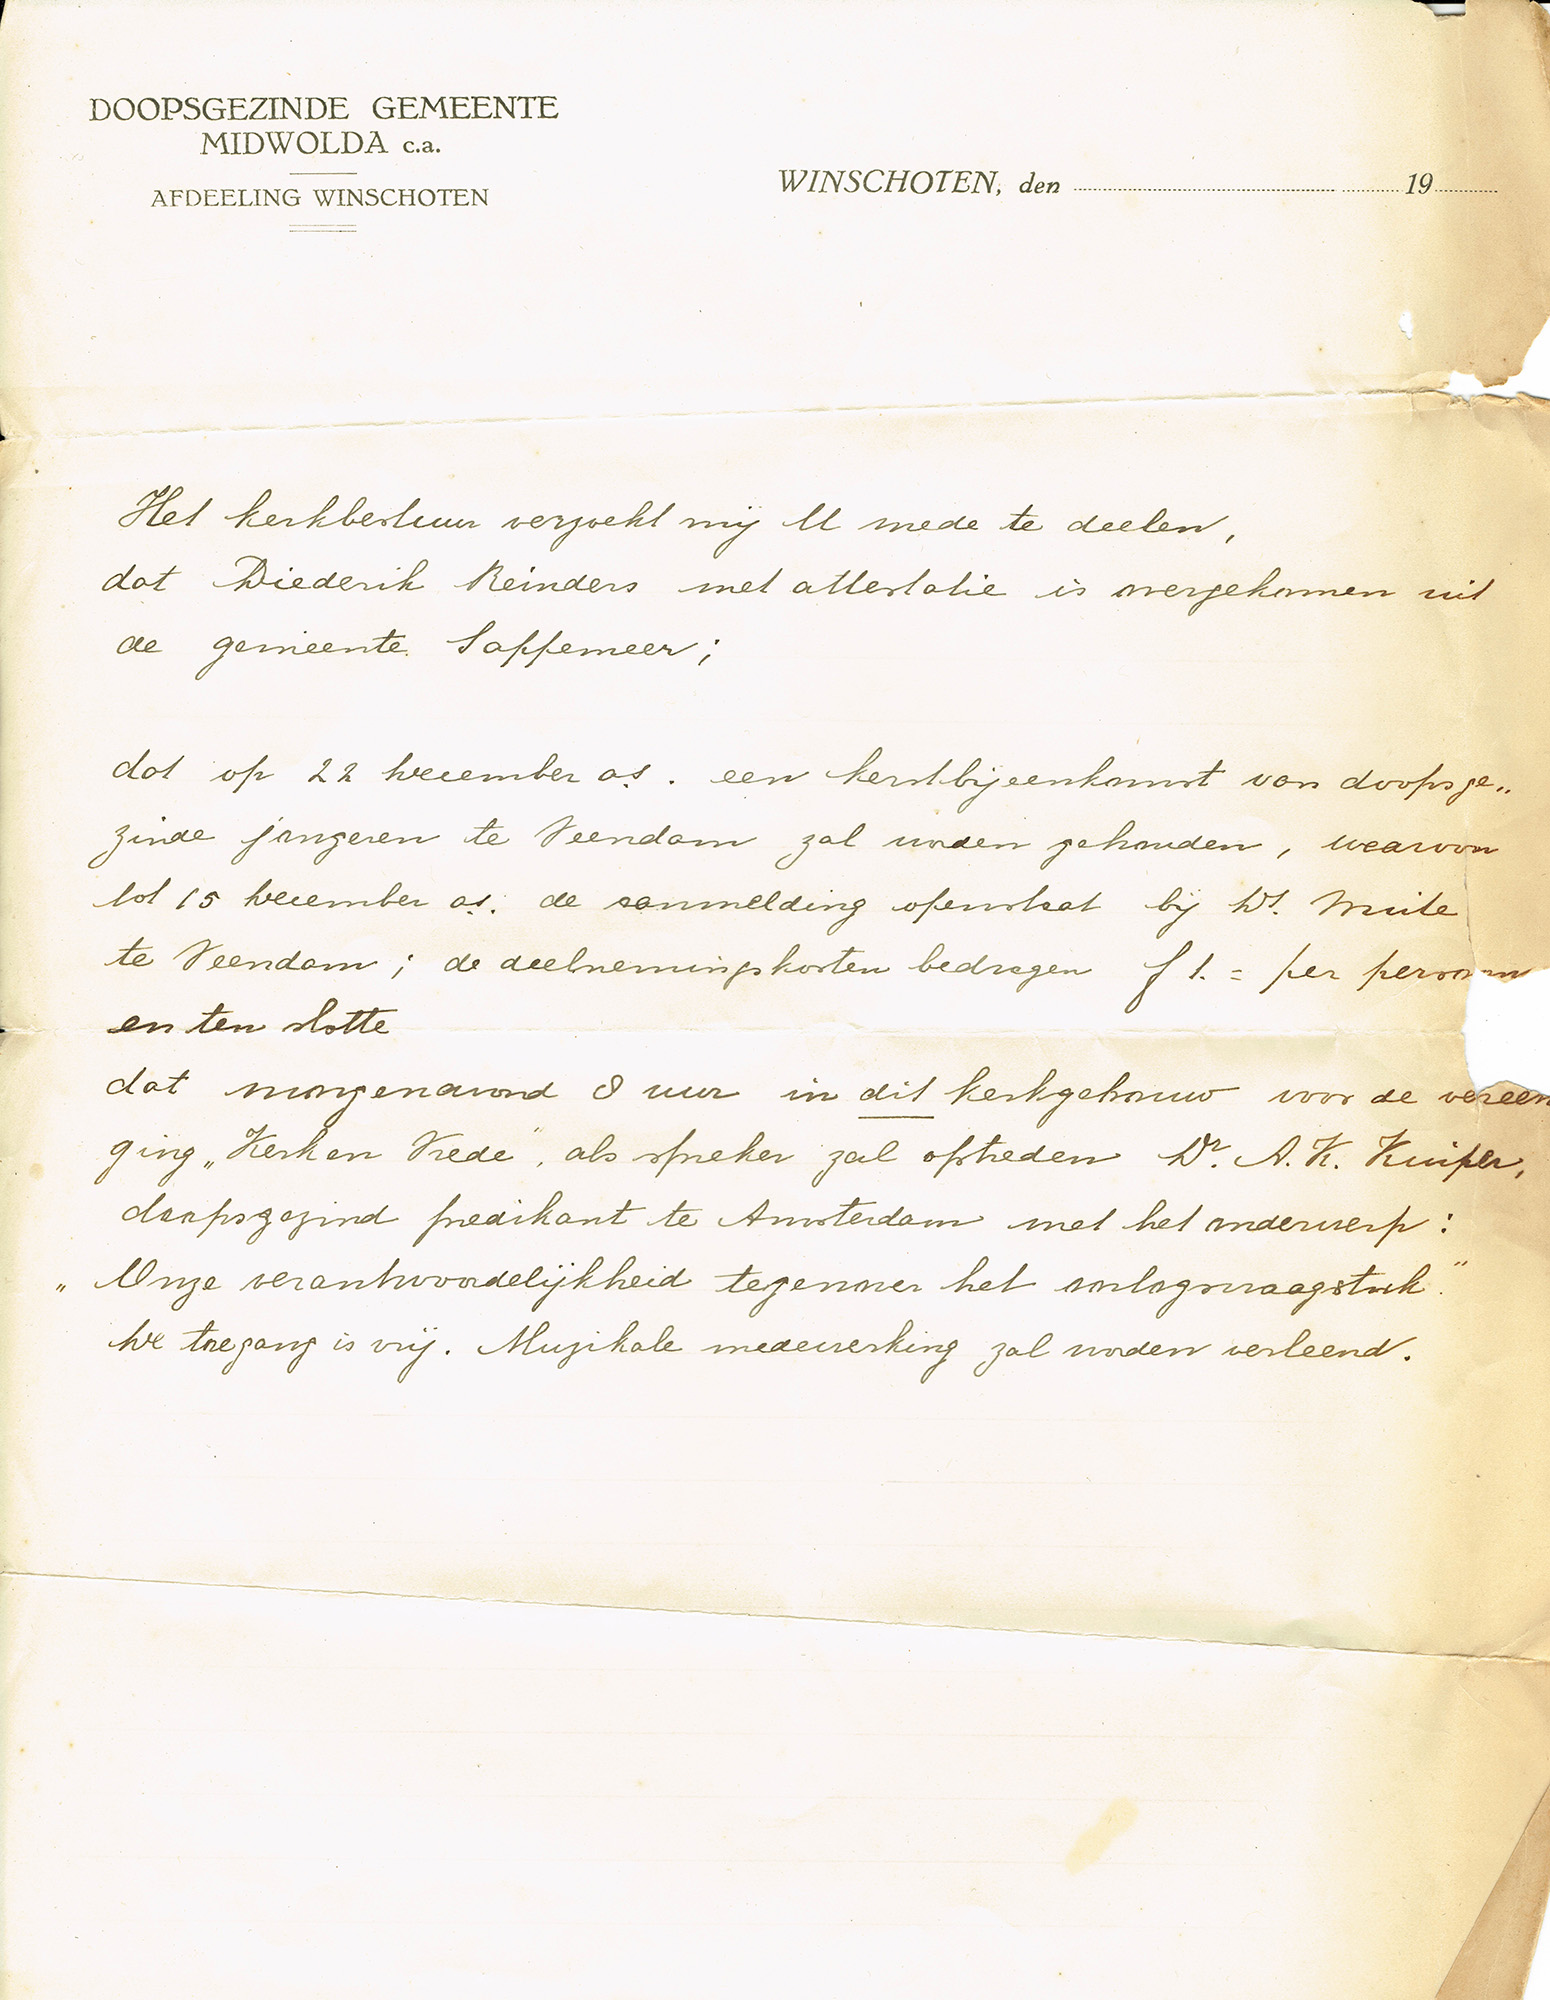 DOOPSGEZINDE GEMEENTE
MIDWOLDA c.a.
AFDEELING WINSCHOTEN
WINSCHOTEN, den ........ 19....
Het kerkbestuur verzoekt mij U mede te deelen,
dat Diederik Reinders met attestatie is overgekomen uit
de gemeente Sappemeer;
dat op 22 December a.s. een kerstbijeenkomst van doopsge„
zinde jongeren te Veendam zal worden gehouden, waarvoor
tot 15 December a.s. de aanmelding openstaat bij Ds. Muile
te Veendam; de deelnemingskosten bedragen f 1.= per persoon
en ten slotte
dat morgenavond 8 uur in dit kerkgebouw voor de vereen
ging „Kerk en Vrede", als spreker zal optreden Dr. A.K. Kuiper,
doopsgezind predikant te Amsterdam met het onderwerp:
„Onze verantwoordelijkheid tegenover het oorlogsvraagstuk."
De toegang is vrij. Muzikale medewerking zal worden verleend.